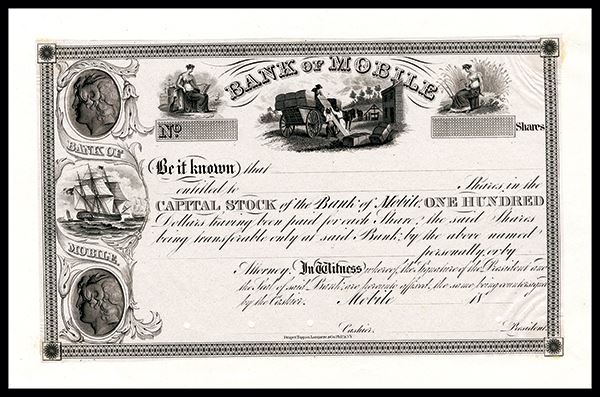 BANK OF MOBILE
No
Shares
BANK OF
MOBILE
(Be it known) that
entitled to Shares, in the
CAPITAL STOCK of the Bank of Mobile, ONE HUNDRED
Dollars having been paid for each Share; the said Shares
being transferable only at said Bank; by the above named
personally, or by
Attorney. In Witness whereof, the Signature of the President and
the Seal of said Bank, are hereunto affixed, the same being countersigned
by the Cashier. Mobile 18
Cashier. President
Draper, Toppan, Longacre & Co. Phil. & N.Y.